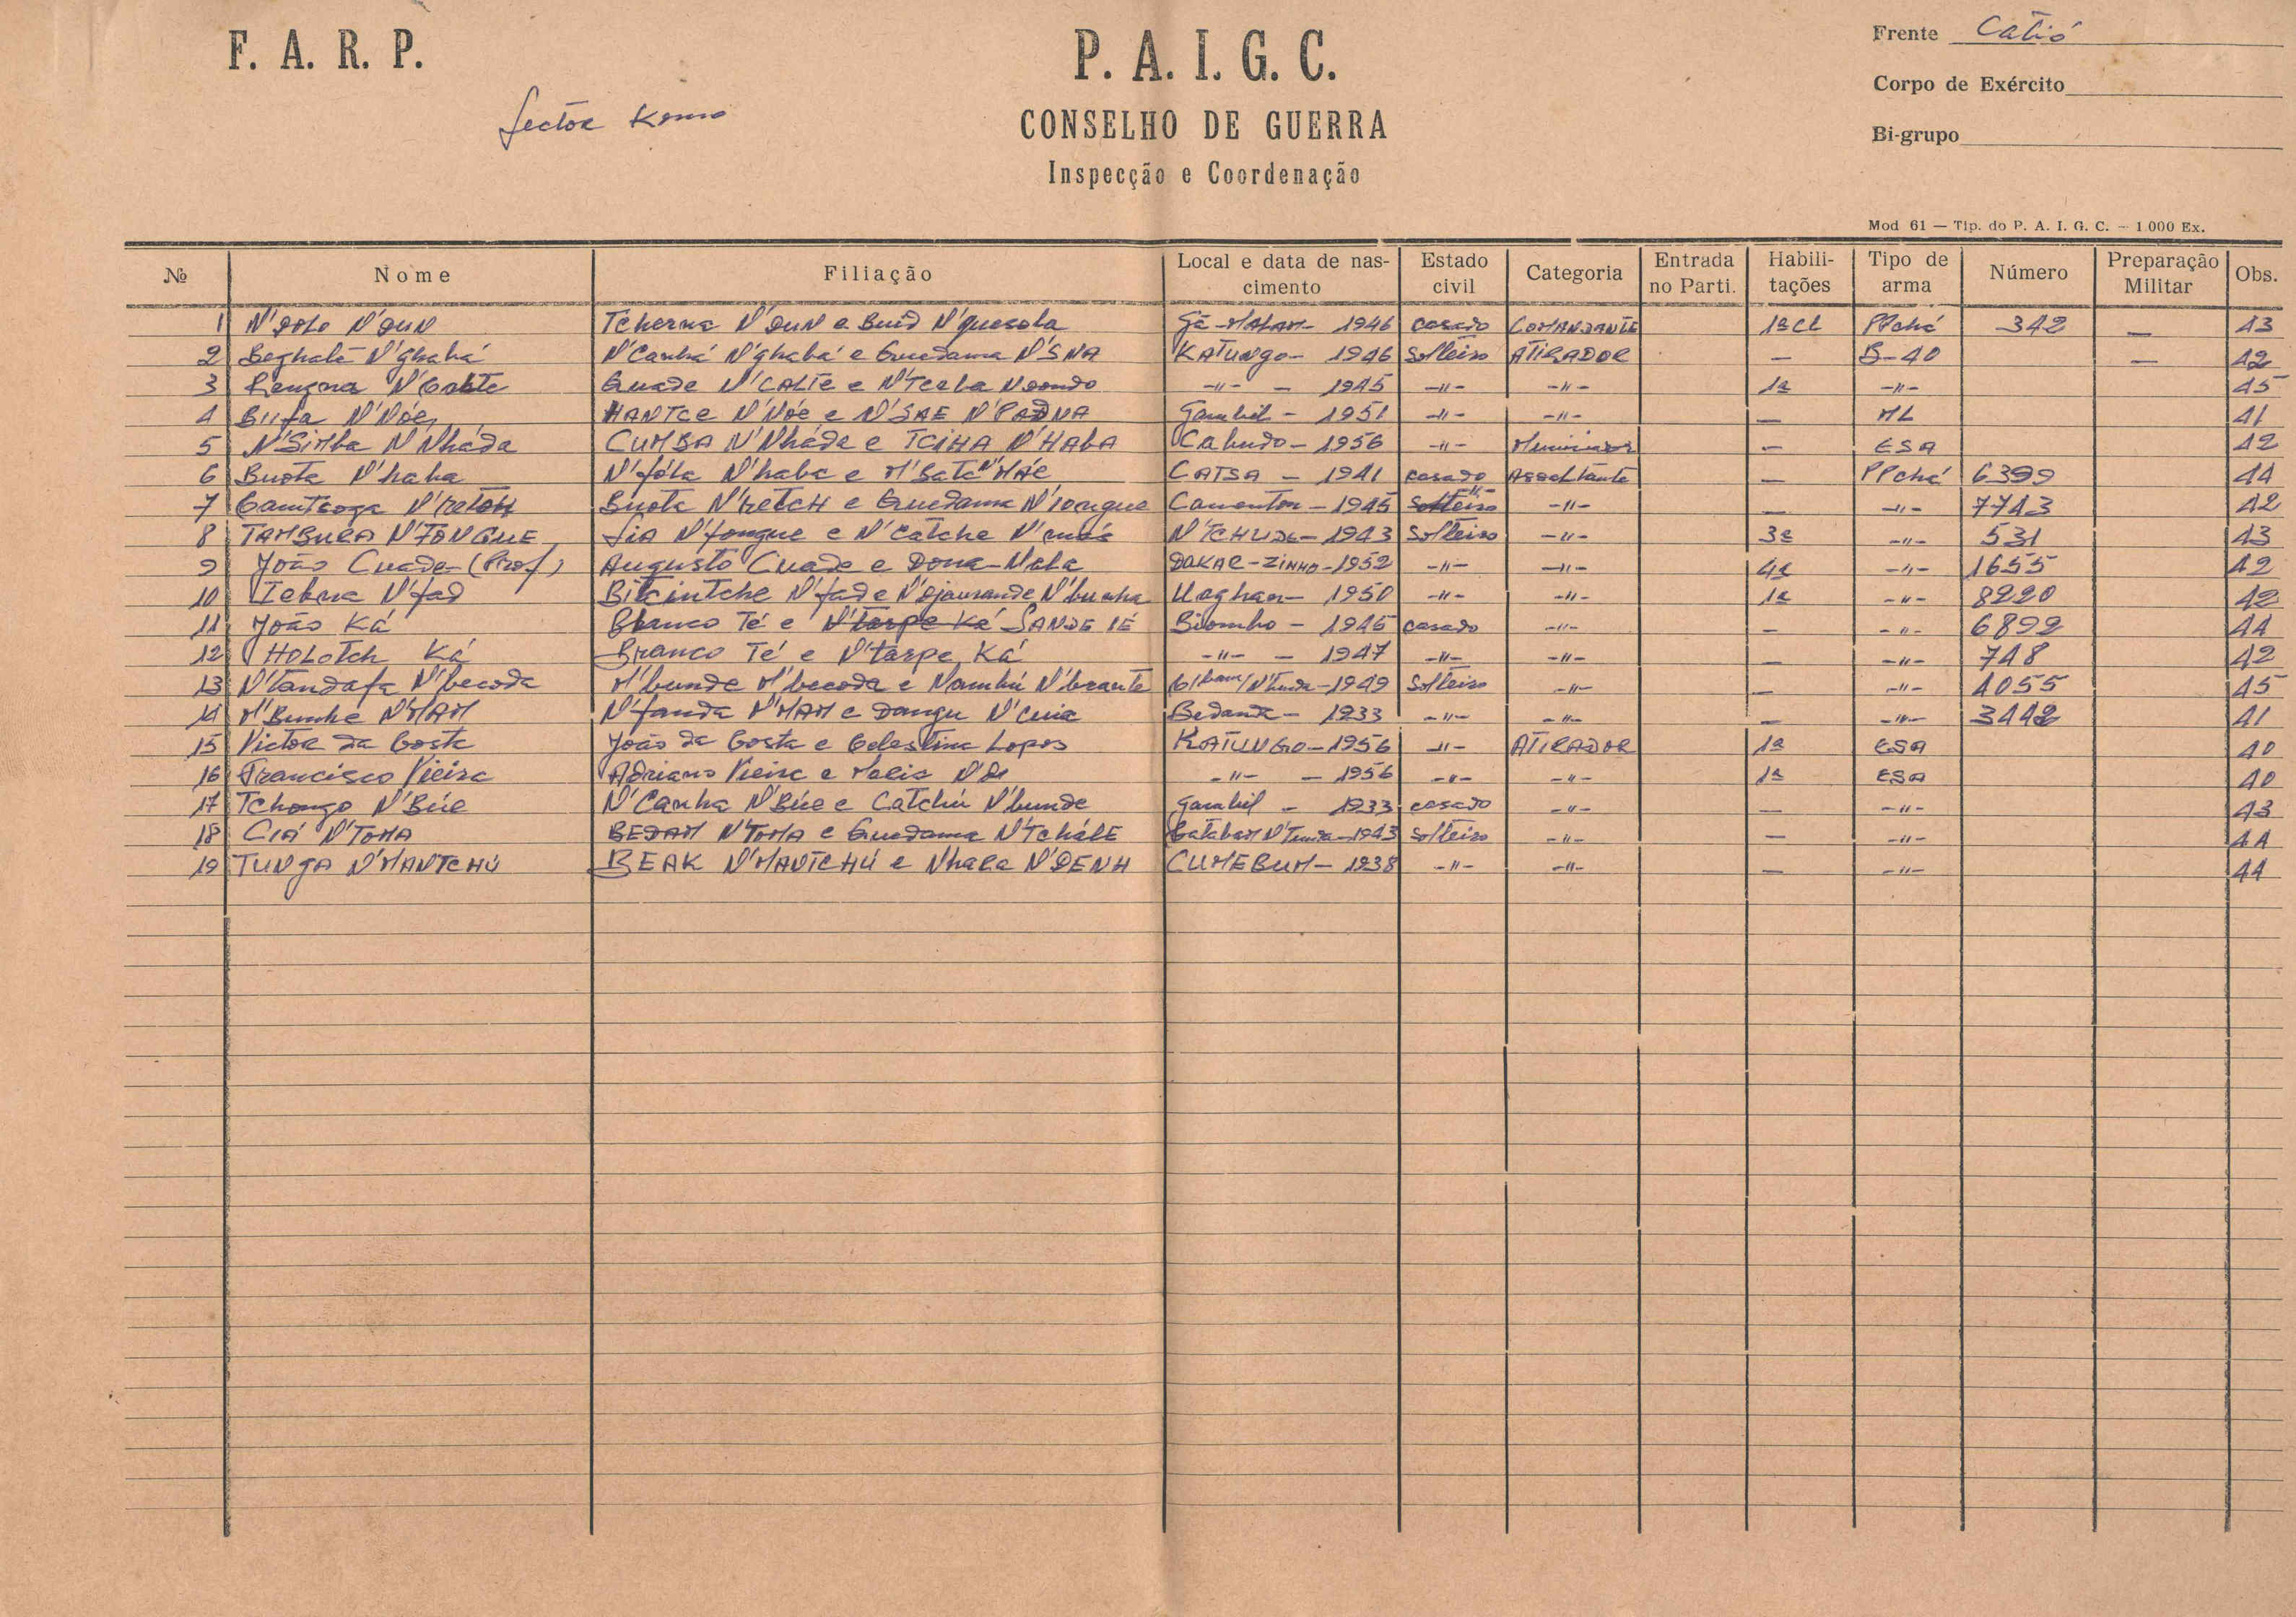 F. A. R. P.
P. A. I. G. C.
Frente Catió
Sector Komo
CONSELHO DE GUERRA
Corpo de Exército
Inspecção e Coordenação
Bi-grupo
Mod 61 — Tip. do P. A. I. G. C. — 1 000 Ex.
№ Nome Filiação Local e data de nascimento Estado civil Categoria Entrada no Parti. Habilitações Tipo de arma Número Preparação Militar Obs.
1 N'DOLO N'DUN Tcherna N'DUN e Buid N'quesola Gã-MALAM- 1946 casado COMANDANTE 1ªCl PPchá 342 — 43
2 Beghalé N'ghabá N'Canhá N'ghabá e Guedama N'SNA KATUNGO- 1946 Solteiro ATIRADOR — B-40 — 42
3 N'Cabte Guade N'CALTE e N'Teeba Ndondo -"- - 1945 -"- -"- 1ª -"- 45
4 Biifa N'Nóe HANTCE N'Nóe e N'SAE N'PADNA Gambil - 1951 -"- -"- — ML 41
5 N'Simba N'Nháda CUMBA N'Nháda e TCIHA N'HABA Cabudo- 1956 -"- Municiador — ESA 42
6 Buota N'haba N'fóla N'haba e M'Batá N'MÁE CATBA - 1941 casado Assaltante — PPchá 6399 44
7 N'retch Buota N'retch e Guedama N'iongue Camonton - 1945 Solteiro -"- — -"- 7743 42
8 TAMBURA N'FONGUE Sia N'fongue e N'Catche N'más N'TCHUDE- 1943 Solteiro -"- 3ª -"- 531 43
9 João Cuade-(Prof) Augusto Cuade e Dona-Nala DAKAR-ZINHO-1952 -"- -"- 4ª -"- 1655 42
10 Iebna N'fad Bitcintche N'fad e N'djaurande N'bunha Uaghan- 1950 -"- -"- 1ª -"- 8220 42
11 João Ká Branco Té e N'taspe Ká SANDE IÉ Biombo - 1945 casado -"- - -"- 6892 44
12 HOLOTCH KÁ Branco Té e N'táspe Ká -"- - 1947 -"- -"- — -"- 748 42
13 N'tandafa N'becoda M'bunde M'becoda e Nambú N'brante N'Tunda-1949 Solteiro -"- — -"- 4055 45
14 M'Bunhe N'MAM N'fanda N'MAM e Dangu N'Cuia Bedanda- 1933 -"- -"- — -"- 3442 41
15 Victor da Costa João da Costa e Celestina Lopes KATUNGO-1956 -"- ATIRADOR 1ª ESA 40
16 Francisco Vieira Adriano Vieira e Maria -"- - 1956 -"- -"- 1ª ESA 40
17 Tchongo N'Búe N'Canha N'Búe e Catchú N'bunde Gambil - 1933 casado -"- — -"- 43
18 CIÁ N'TOMA BEDAM N'TOMA e Guedama N'TCHALE Catabam N'Tunda-1943 Solteiro -"- — -"- 44
19 TUNGA N'MANTCHÚ BEAK N'MANTCHÚ e Nhara N'DENH CUMEBUM- 1938 -"- -"- — -"- 44